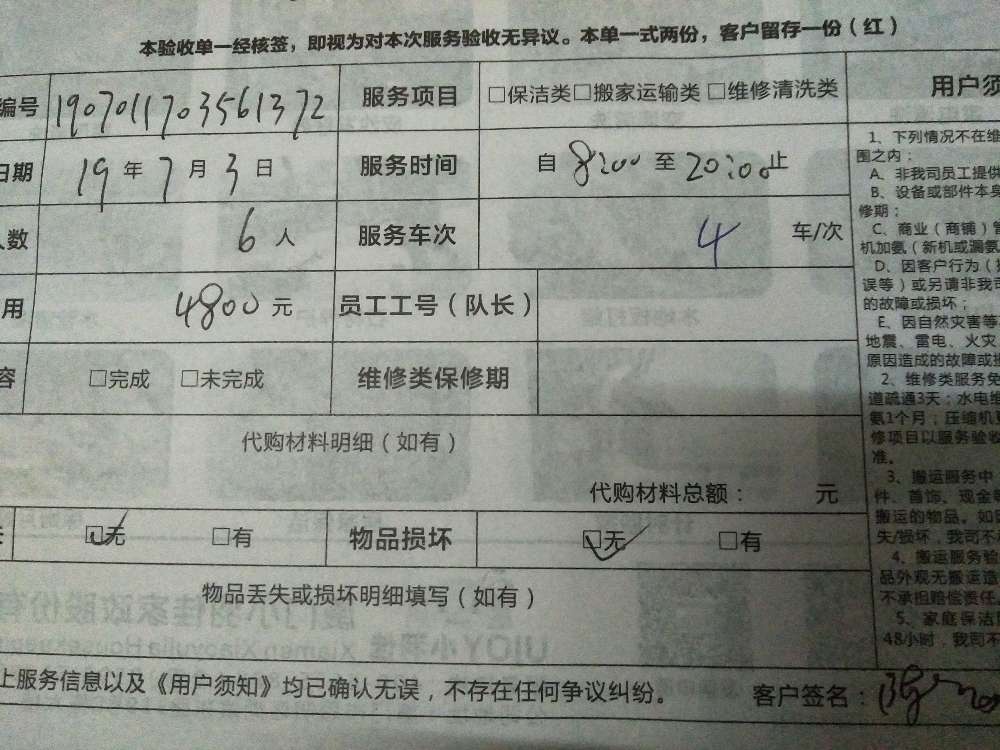 本验收单一经核签，即视为对本次服务验收无异议。本单一式两份，客户留存一份（红）
编号 1907011703561372 服务项目 □保洁类□搬家运输类 □维修清洗类
日期 19 年 7 月 3 日 服务时间 自 8:00 至 20:00 止
人数 6 人 服务车次 4 车/次
用 4800 元 员工工号（队长）
容 □完成 □未完成 维修类保修期
代购材料明细（如有）
代购材料总额： 元
☑无 □有 物品损坏 ☑无 □有
物品丢失或损坏明细填写（如有）
上服务信息以及《用户须知》均已确认无误，不存在任何争议纠纷。 客户签名：
用户须
1、下列情况不在维
围之内：
A、非我司员工提供
B、设备或部件本身
修期；
C、商业（商铺）
机加氨（新机或漏氨
D、因客户行为（
误等）或另请非我司
的故障或损坏；
E、因自然灾害等
地震、雷电、火灾
原因造成的故障或损
2、维修类服务免
道疏通3天；水电维
氨1个月；压缩机
修项目以服务验收
准。
3、搬运服务中
件、首饰、现金
搬运的物品。如
失/损坏，我司不
4、搬运服务验
品外观无搬运造
不承担赔偿责任
5、家庭保洁
48小时，我司不
UJOY小羽佳
Xiamen Xiaoyujia Housekeep
厦门小羽佳家政股份有